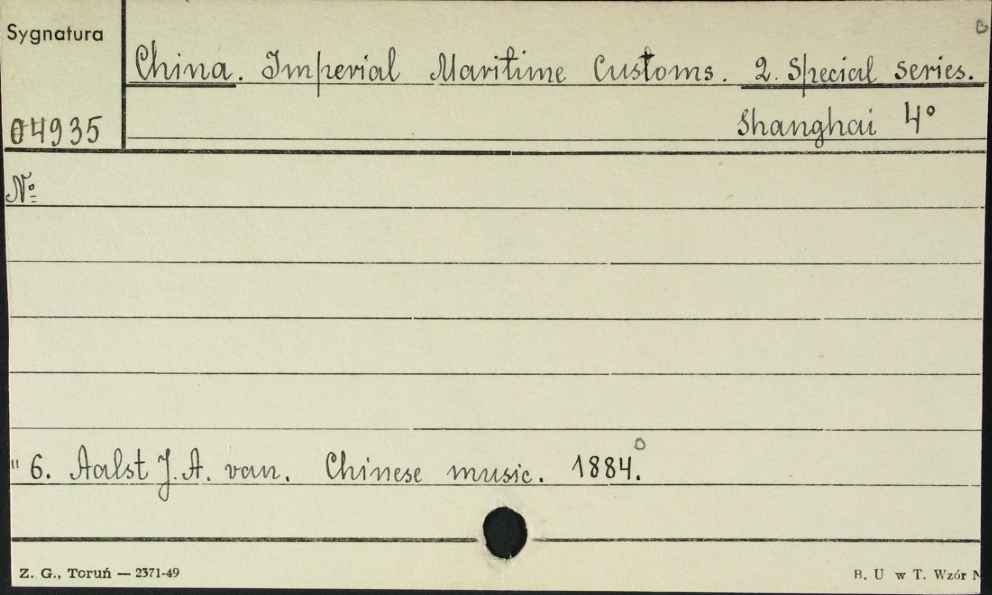 Sygnatura
China. Imperial Maritime Customs. 2. Special series.
04935
Shanghai 4°
No
" 6. Aalst J. A. van. Chinese music. 1884.
Z. G., Toruń — 2371-49
B. U w T. Wzór N